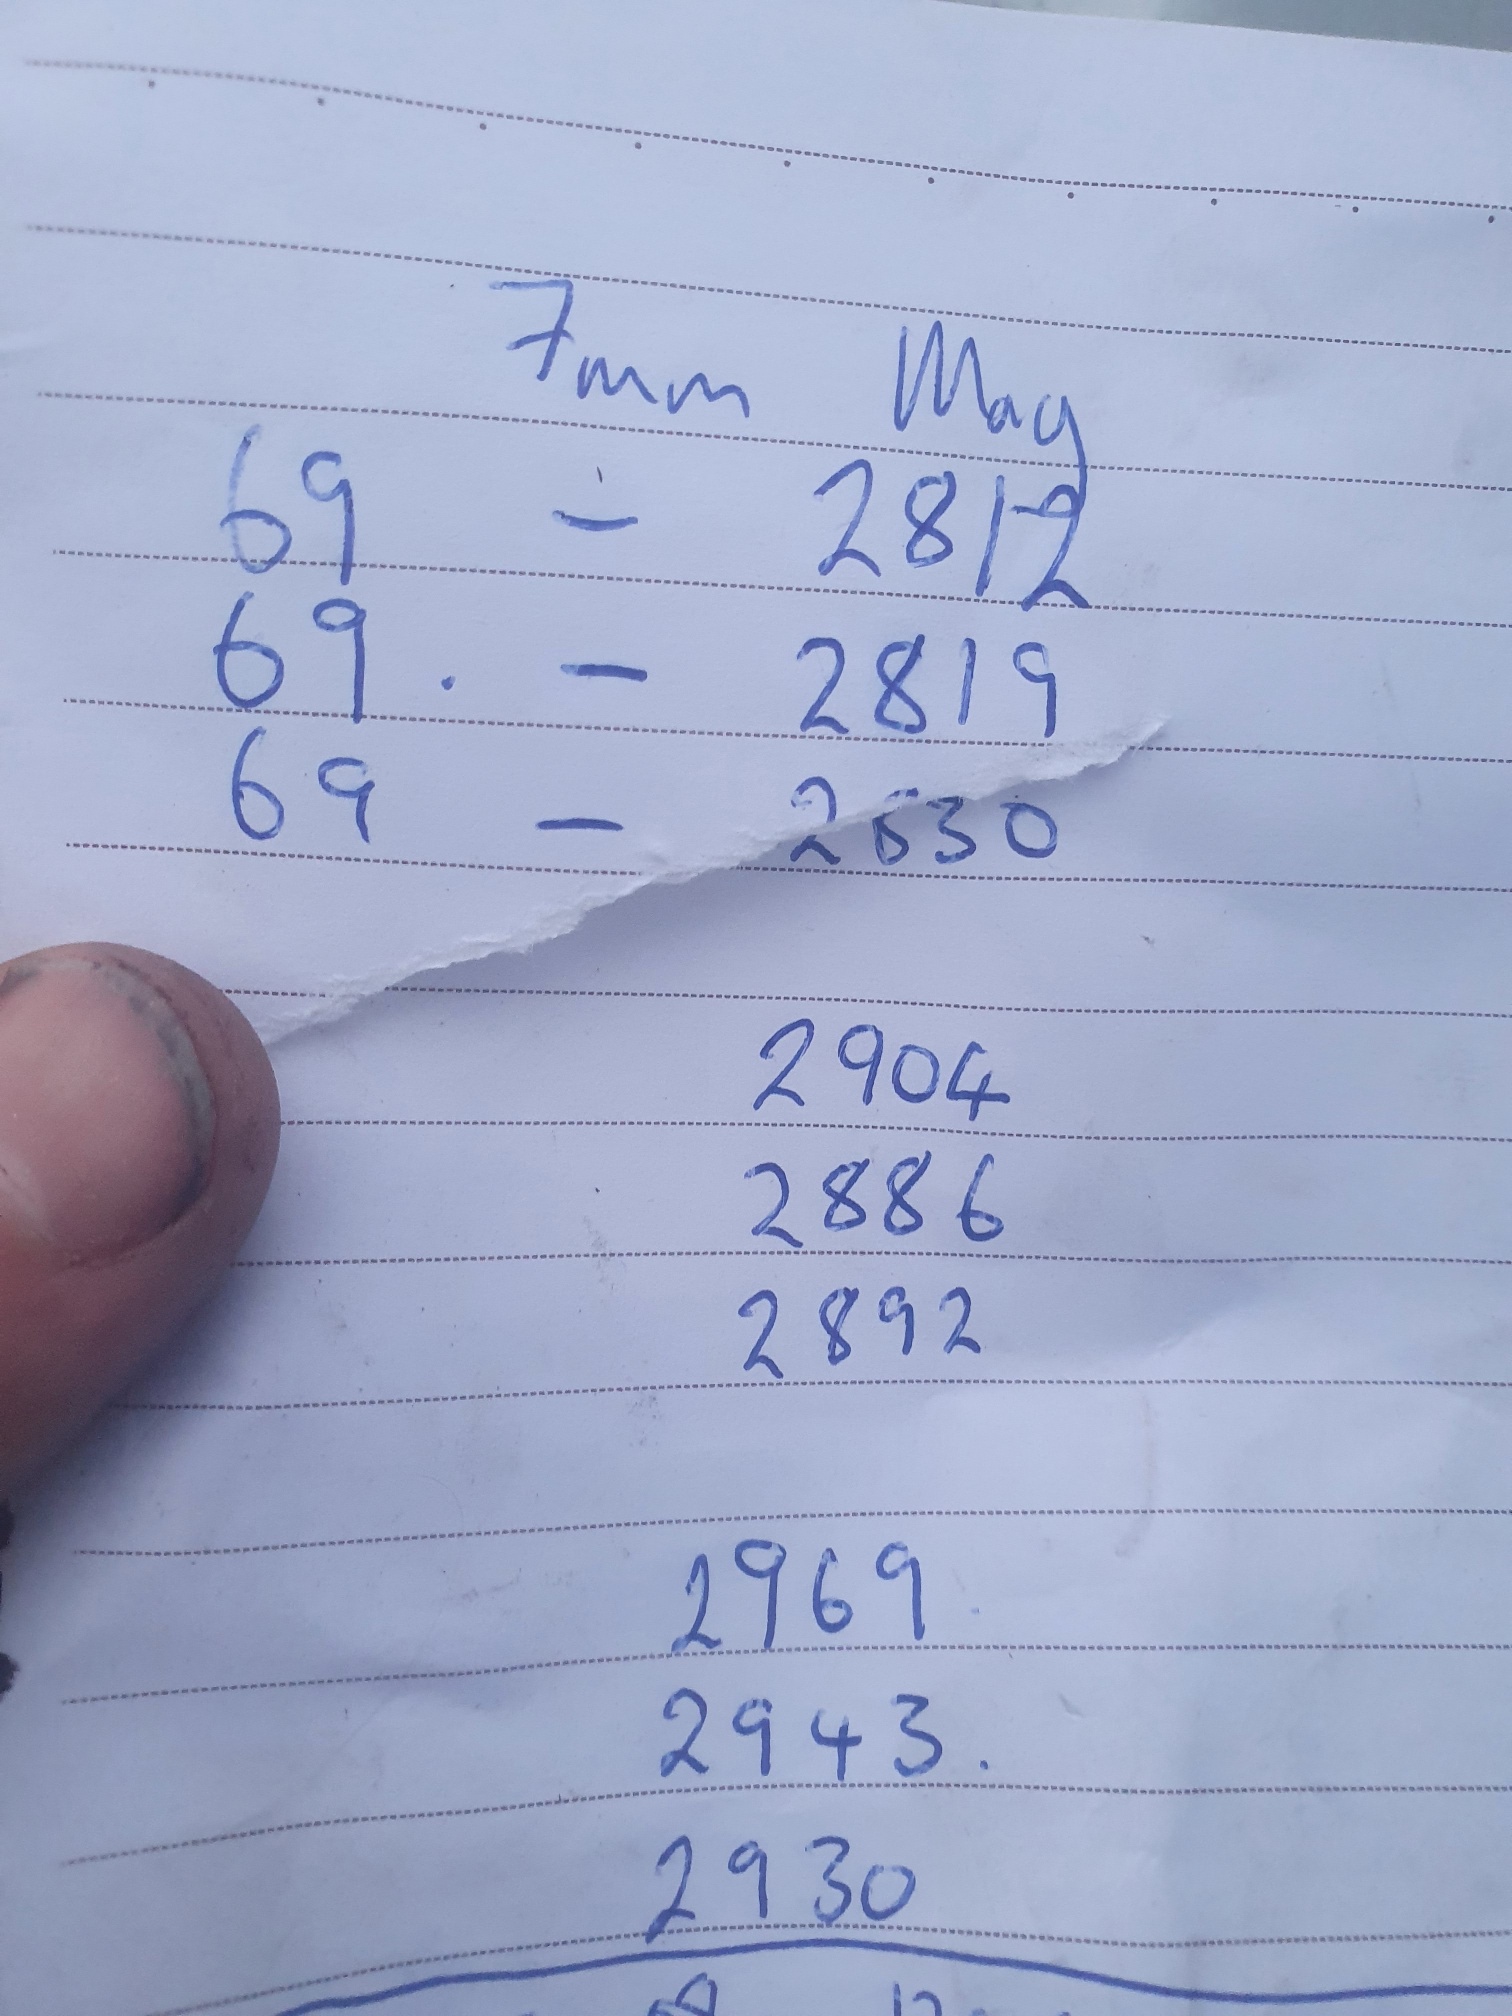 7mm Mag
69 - 2812
69. - 2819
69 - 2830
2904
2886
2892
2969.
2943.
2930